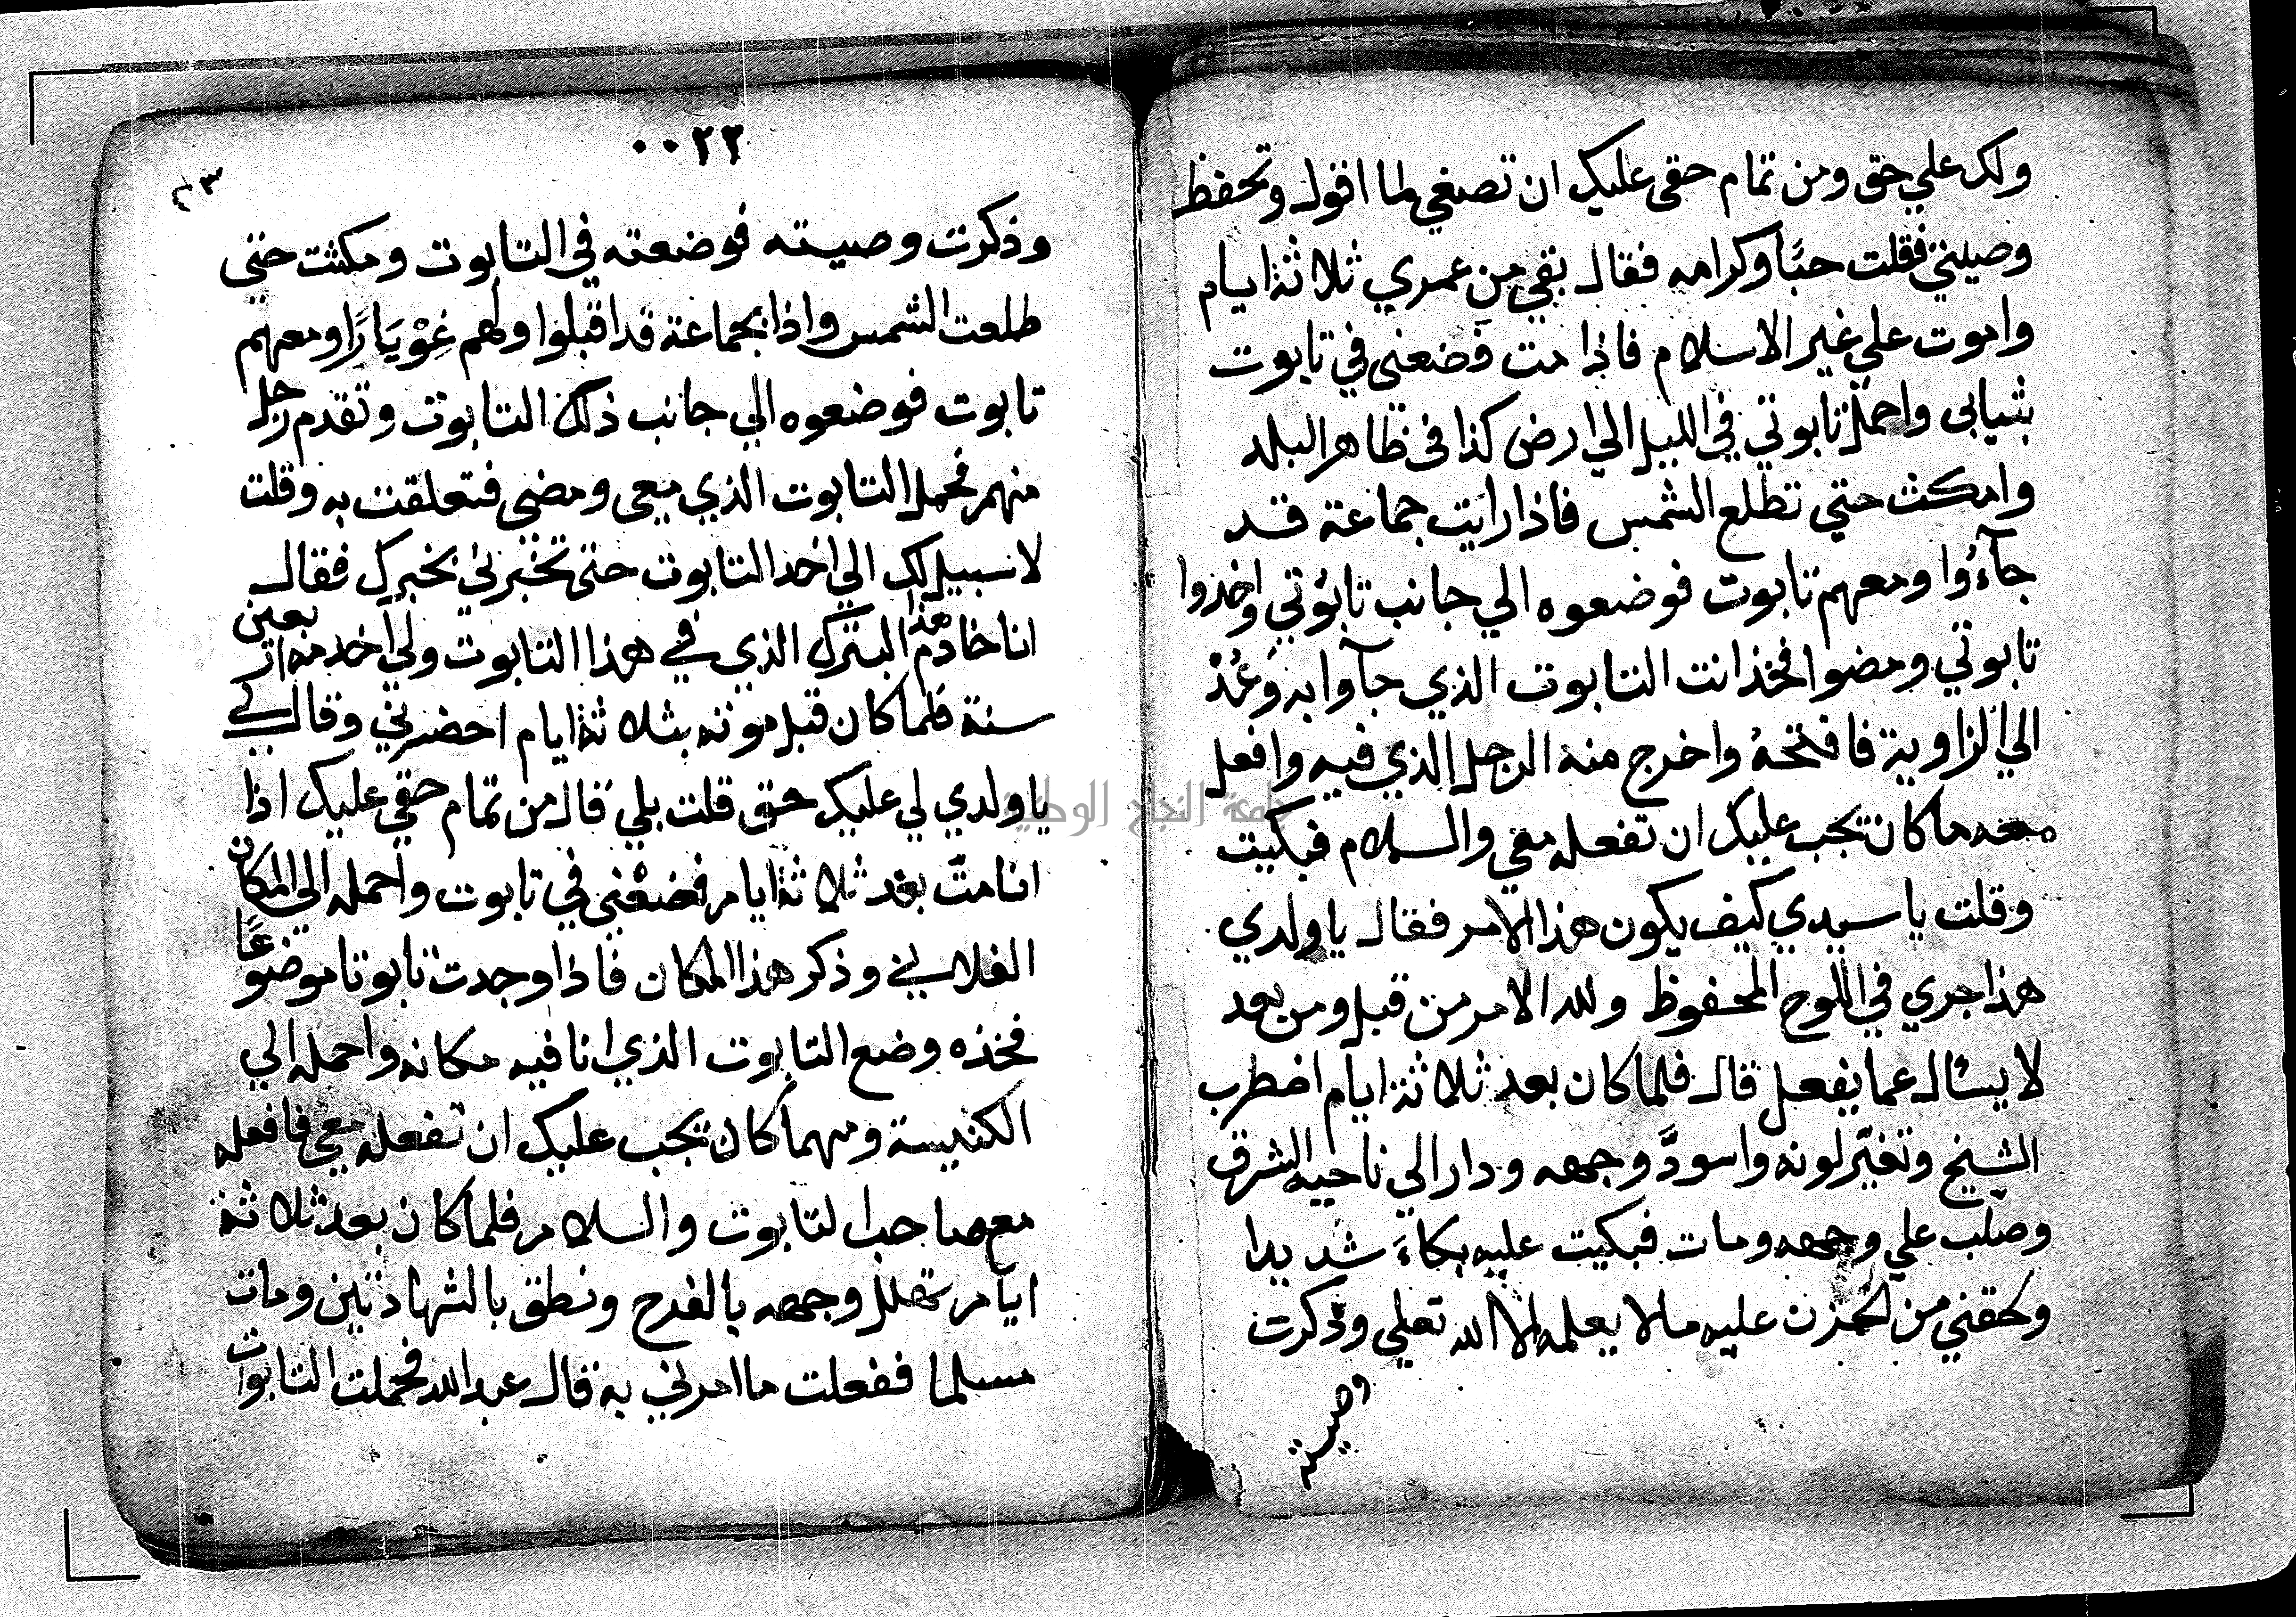 ولك علي حق ومن تمام حقي عليك ان تصغي لما اقول وتحفظ
وصيتي فقلت حبًّا وكرامه فقال بقي من عمري ثلاثة ايام
واموت علي غير الاسلام فاذا مت فضعني في تابوت
بثيابي واحمل تابوتي في الليل الي ارض كذا في ظاهر البلد
وامكث حتي تطلع الشمس فاذا رايت جماعة قد
جآءُوا ومعهم تابوت فوضعوه الي جانب تابوتي واخذوا
تابوتي ومضوا فخذ انت التابوت الذي جآوا به وَعُدْ
الي الزاوية فافتحهُ واخرج منه الرجل الذي فيه وافعل
معه ما كان يجب عليك ان تفعله معي والسلام فبكيت
وقلت يا سيدي كيف يكون هذا الامر فقال يا ولدي
هذا جري في اللوح المحفوظ ولله الامر من قبل ومن بعد
لا يسئال عما يفعل قال فلما كان بعد ثلاثة ايام اضطرب
الشيخ وتغيّر لونه واسودَّ وجهه ودار الي ناحيه الشرق
وصلب علي وجهه ومات فبكيت عليه بكاءً شديدا
ولحقني من الحزن عليه مالا يعلمه الا الله تعلي وذكرت
وصيته
٠٠٢٢
وذكرت وصيته فوضعته في التابوت ومكثت حتي
طلعت الشمس واذا بجماعة قد اقبلوا ولهم غِوْيَارًا ومعهم
تابوت فوضعوه الي جانب ذلك التابوت وتقدم رجل
منهم فحمل التابوت الذي معي ومضي فتعلقت به وقلت
لا سبيل لك الي اخد التابوت حتي تخبرني بخبرك فقال
انا خادم هذا البترك الذي في هذا التابوت ولي اخدمه اربعين
سنة فلما كان قبل موته بثلاثة ايام احضرني وقال لي
يا ولدي لي عليك حق قلت بلي قال من تمام حقي عليك اذا
انا متّ بعد ثلاثة ايام فضعْني في تابوت واحمله الي المكان
الفلاني وذكر هذا المكان فاذا وجدت تابوتا موضوعًا
فخذه وضع التابوت الذي انا فيه مكانه واحمله الي
الكنيسة ومهما كان يجب عليك ان تفعله معي فافعله
مع صاحب التابوت والسلام فلما كان بعد ثلاثة
ايام تهلل وجهه بالفرح ونطق بالشهادتين ومات
مسلما ففعلت ما امرني به قال عبد الله فحملت التابوت
جامعة النجاح الوطنية